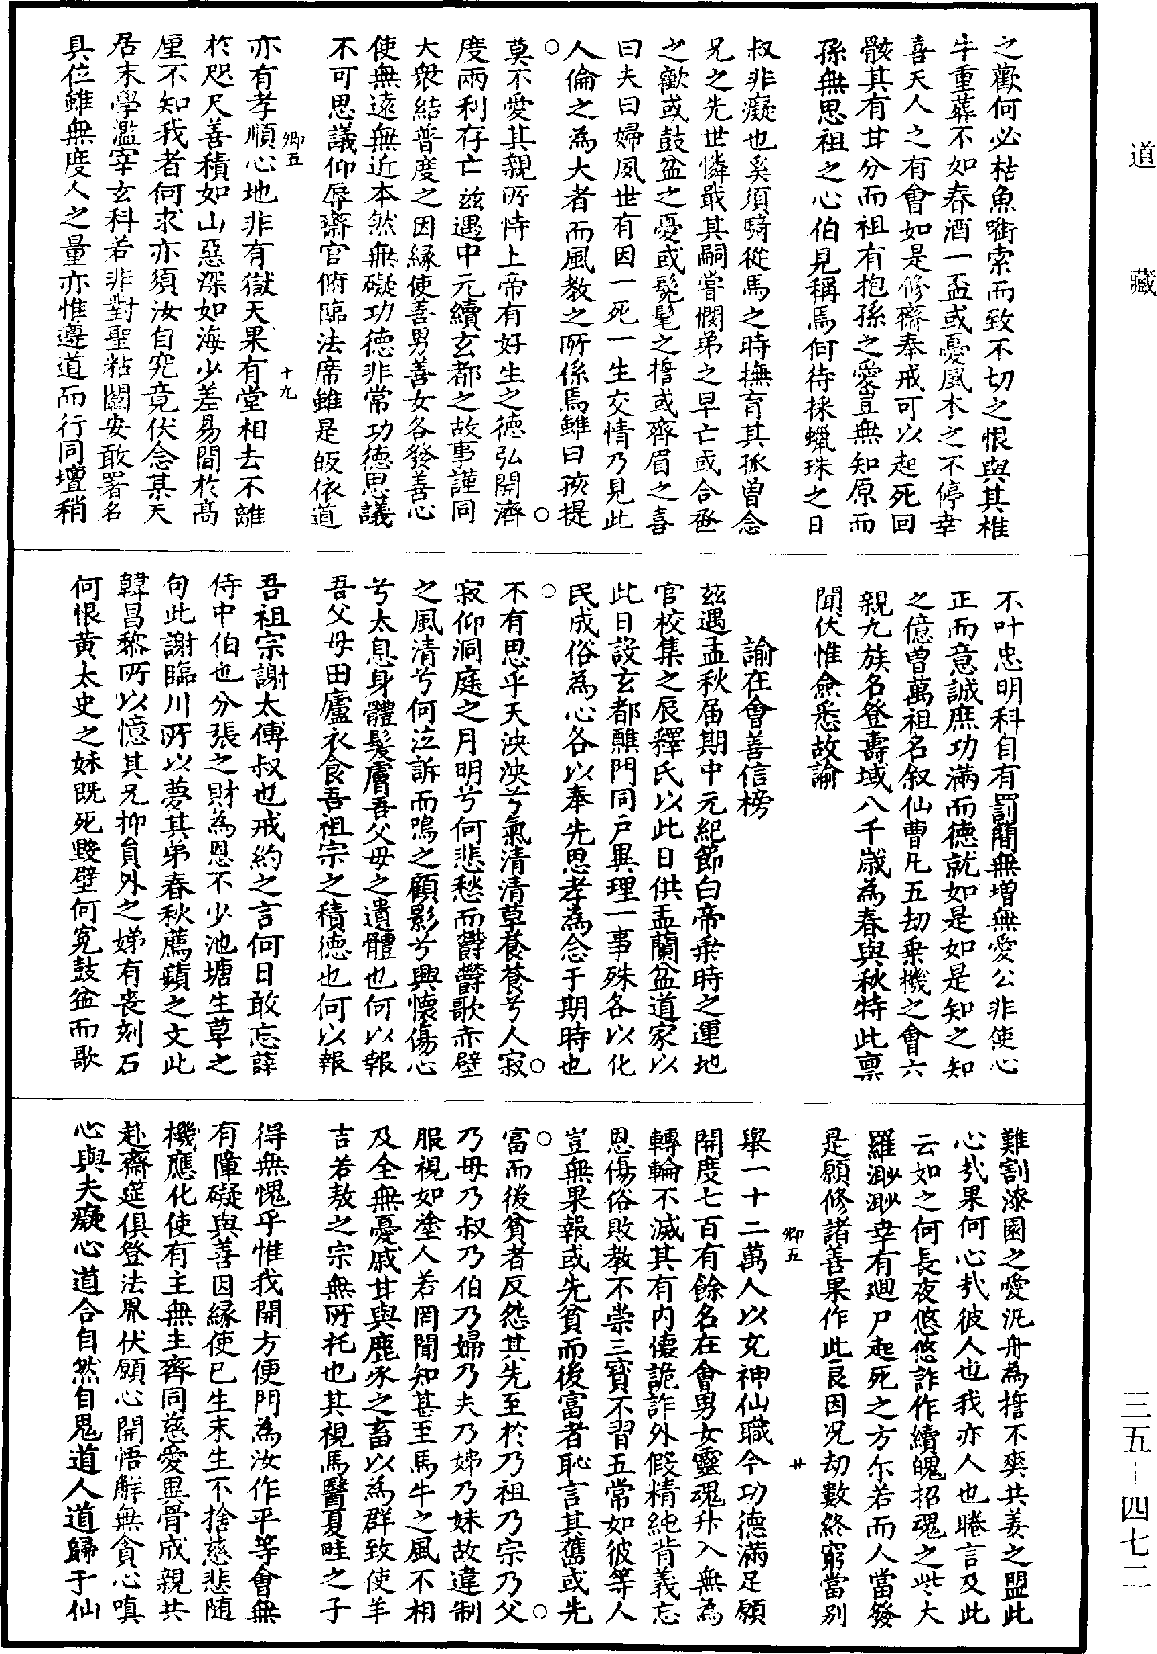 道藏
三五—四七二
之歡何必枯魚啣索而致不切之恨與其椎
牛重墓不如春酒一盃或憂風木之不停幸
喜天人之有會如是修齋奉戒可以起死回
骸其有甘分而祖有抱孫之愛豈無知原而
孫無思祖之心伯見稱焉何待採蠟珠之日
叔非癡也奚須騎從馬之時撫育其孤曾念
兄之先世憐戢其嗣嘗憫弟之早亡或合巹
之歡或鼓盆之憂或髡髦之擔或齊眉之喜
曰夫曰婦夙世有因一死一生交情乃見此
人倫之為大者而風教之所係焉雖曰孩提
○
莫不愛其親所恃上帝有好生之德弘開濟
度兩利存亡茲遇中元續玄都之故事謹同
大衆結普度之因緣使善男善女各發善心
使無遠無近本然無礙功德非常功德思議
不可思議仰辱齋官俯臨法席雖是皈依道
卿五 十九
亦有孝順心地非有獄天果有堂相去不離
於咫尺善積如山惡深如海少差易間於高
厘不知我者何求亦須汝自究竟伏念某天
居末學濫宰玄科若非對聖粘闢安敢署名
具位雖無度人之量亦惟遵道而行同壇稍
不叶忠明科自有罰簡無增無愛公非使心
正而意誠庶功滿而德就如是如是知之知
之億曾萬祖名叙仙曹凡五劫乗機之會六
親九族名登壽域八千歲為春與秋特此禀
聞伏惟僉悉故諭
諭在會善信榜
茲遇孟秋届期中元紀節白帝乗時之運地
官校集之辰釋氏以此日供盂蘭盆道家以
此日設玄都醮門同戶異理一事殊各以化
民成俗為心各以奉先思孝為念于期時也
○
不有思乎天泱泱兮氣清清草蒼蒼兮人寂
寂仰洞庭之月明兮何悲愁而欝欝歌赤壁
之風清兮何泣訴而嗚之顧影兮興懷傷心
兮太息身體髮膚吾父母之遺體也何以報
吾父母田廬衣食吾祖宗之積德也何以報
吾祖宗謝太傅叔也戒約之言何日敢忘薛
侍中伯也分張之財為恩不少池塘生草之
句此謝臨川所以夢其弟春秋薦蘋之文此
韓昌黎所以憶其兄抑貟外之娣有丧刻石
何恨黃太史之妹既死毀壁何寃鼓盆而歌
難割漆園之愛汎舟為擔不爽共姜之盟此
心㢤果何心㢤彼人也我亦人也睠言及此
云如之何長夜悠悠詐作續魄招魂之些大
羅渺渺幸有廻尸起死之方尔若而人當發
是願修諸善果作此良因况劫數終窮當別
卿五 廿
舉一十二萬人以充神仙職今功德滿足願
開度七百有餘名在會男女靈魂升入無為
轉輪不滅其有内懐詭詐外假精純背義忘
恩傷俗敗教不崇三寳不習五常如彼等人
豈無果報或先貧而後富者恥言其舊或先
○
富而後貧者反怨其先至於乃祖乃宗乃父
乃母乃叔乃伯乃婦乃夫乃姊乃妹故違制
服視如塗人若罔聞知甚至馬牛之風不相
及全無憂戚甘與麀豕之畜以為群致使羊
吉若敖之宗無所托也其視馬醫夏畦之子
得無愧乎惟我開方便門為汝作平等會無
有隨礙與善因緣使巳生未生不捨慈悲隨
機應化使有主無主齊同慈愛異骨成親共
赴齋筵俱登法界伏願心開悟解無貪心嗔
心與夫癡心道合自然自鬼道人道歸于仙